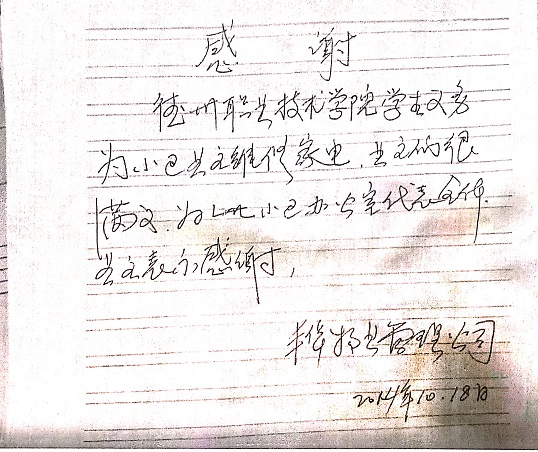 感谢
德州职业技术学院学生义务
为小区业主维修家电，业主们很
满意。为此小区办公室代表全体
业主表示感谢，
丰华物业管理公司
2014年10.18日